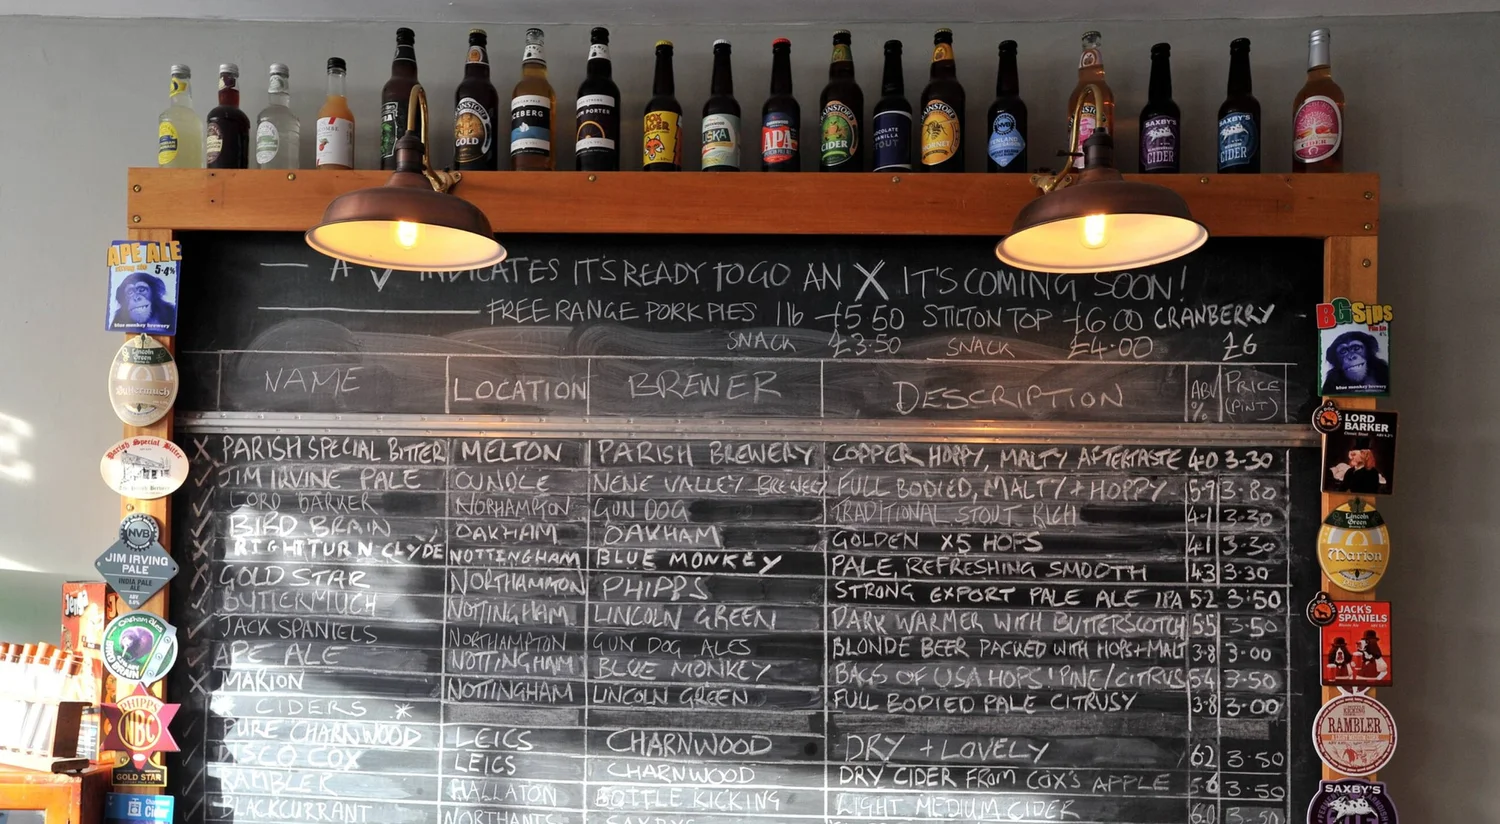 GOLD
ICEBERG
PORTER
FOX
LAGER
APA
CIDER
CHOCOLATE
VANILLA
STOUT
SAXBY'S
CIDER
SAXBY'S
CIDER
CIDER
— A ✓ INDICATES IT'S READY TO GO AN X IT'S COMING SOON!
FREE RANGE PORK PIES 1lb £5.50 STILTON TOP £6.00 CRANBERRY
SNACK £3.50 SNACK £4.00 £6
NAME LOCATION BREWER DESCRIPTION ABV % PRICE (PINT)
X PARISH SPECIAL BITTER MELTON PARISH BREWERY COPPER HOPPY, MALTY AFTERTASTE 4.0 3.30
✓ JIM IRVINE PALE OUNDLE NENE VALLEY BREWERY FULL BODIED, MALTY + HOPPY 5.9 3.80
✓ LORD BARKER NORTHAMPTON GUN DOG TRADITIONAL STOUT RICH 4.1 3.30
✓ BIRD BRAIN OAKHAM OAKHAM GOLDEN X5 HOPS 41 3.30
X RIGHT TURN CLYDE NOTTINGHAM BLUE MONKEY PALE, REFRESHING SMOOTH 43 3.30
GOLD STAR NORTHAMPTON PHIPPS STRONG EXPORT PALE ALE IPA 52 3.50
✓ BUTTERMUCH NOTTINGHAM LINCOLN GREEN DARK WARMER WITH BUTTERSCOTCH 55 3.50
✓ JACK SPANIELS NORTHAMPTON GUN DOG ALES BLONDE BEER PACKED WITH HOPS + MALT 3.8 3.00
✓ APE ALE NOTTINGHAM BLUE MONKEY BAGS OF USA HOPS! PINE/CITRUS 54 3.50
X MARION NOTTINGHAM LINCOLN GREEN FULL BODIED PALE CITRUSY 3.8 3.00
* CIDERS *
PURE CHARNWOOD LEICS CHARNWOOD DRY + LOVELY 62 3.50
COX LEICS CHARNWOOD DRY CIDER FROM COX'S APPLE 5.6 3.50
RAMBLER HALLATON BOTTLE KICKING LIGHT MEDIUM CIDER 6.0 3.50
BLACKCURRANT NORTHANTS SAXBYS
APE ALE
5.4%
blue monkey brewery
Lincoln Green
Buttermuch
Parish Special Bitter
NVB
JIM IRVING PALE
INDIA PALE ALE
Oakham Ales
BIRD BRAIN
PHIPPS
NBC
GOLD STAR
Cider
BG Sips
blue monkey brewery
LORD BARKER
Lincoln Green
Marion
JACK'S SPANIELS
KICKING
RAMBLER
SAXBY'S